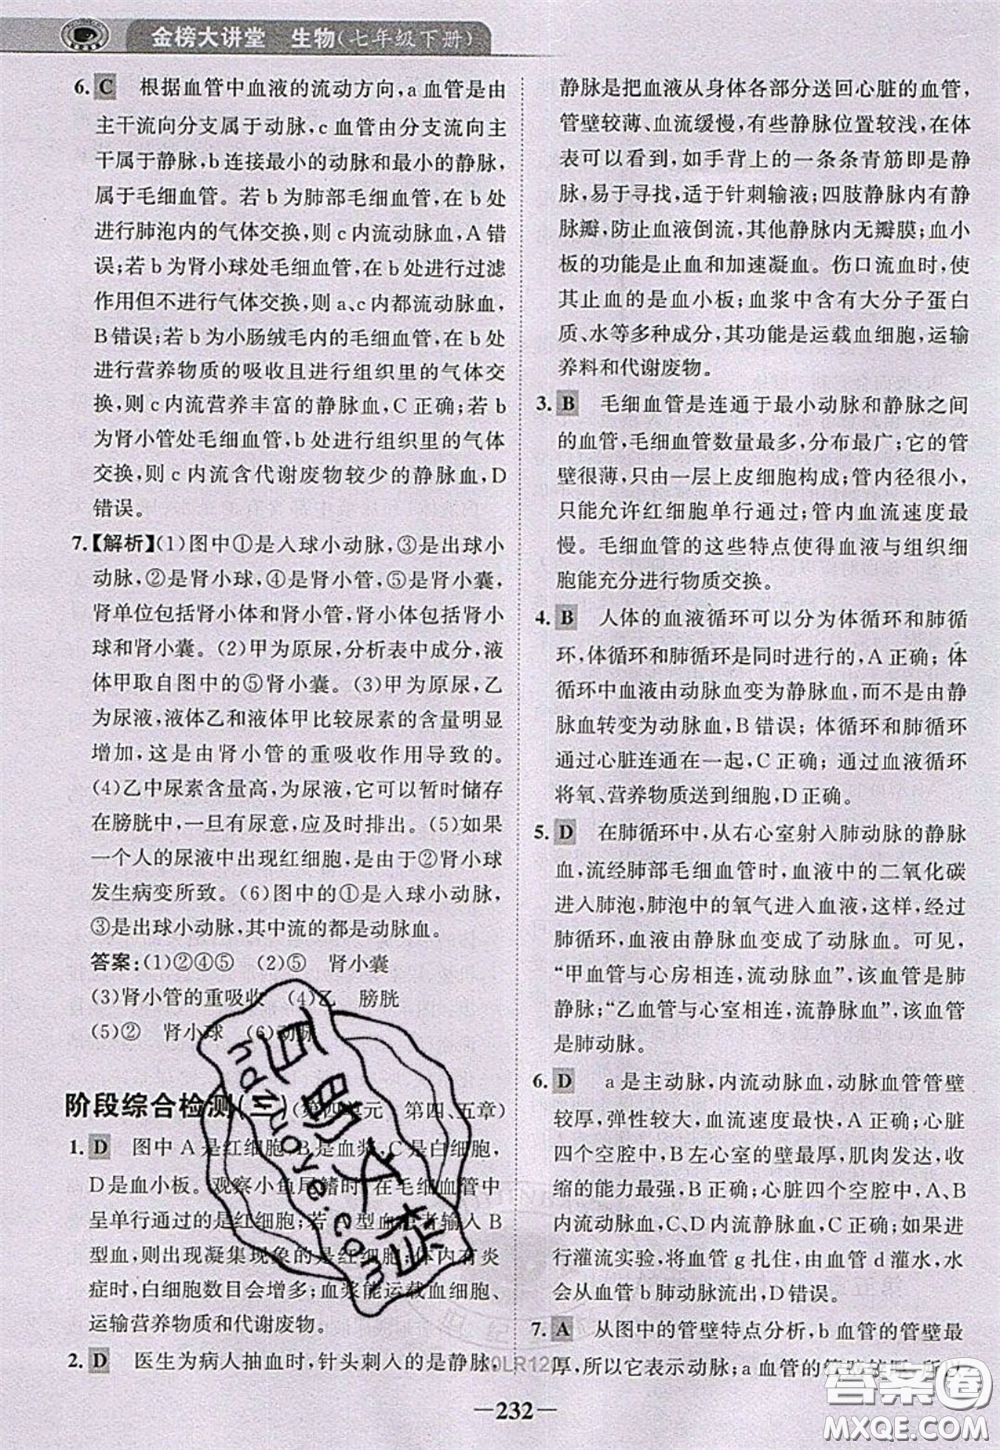 金榜大讲堂 生物(七年级下册)
6. C 根据血管中血液的流动方向,a血管是由
主干流向分支属于动脉,c血管由分支流向主
干属于静脉,b连接最小的动脉和最小的静脉,
属于毛细血管。若b为肺部毛细血管,在b处
进行肺泡内的气体交换,则c内流动脉血,A错
误;若b为肾小球处毛细血管,在b处进行过滤
作用但不进行气体交换,则a、c内都流动脉血,
B错误;若b为小肠绒毛内的毛细血管,在b处
进行营养物质的吸收且进行组织里的气体交
换,则c内流营养丰富的静脉血,C正确;若b
为肾小管处毛细血管,在b处进行组织里的气体
交换,则c内流含代谢废物较少的静脉血,D
错误。
7.【解析】(1)图中①是入球小动脉,③是出球小
动脉,②是肾小球,④是肾小管,⑤是肾小囊,
肾单位包括肾小体和肾小管,肾小体包括肾小
球和肾小囊。(2)甲为原尿,分析表中成分,液
体甲取自图中的⑤肾小囊。(3)甲为原尿,乙
为尿液,液体乙和液体甲比较尿素的含量明显
增大,这是由肾小管的重吸收作用导致的。
(4)乙中尿素含量高,为尿液,它可以暂时储存
在膀胱中,一旦有尿意,应及时排出。(5)如果
一个人的尿液中出现红细胞,可能是②肾小球
发生病变所致。(6)图中的①是入球小动脉,
③是出球小动脉,其中流的都是动脉血。
答案:(1)②④⑤ (2)⑤ 肾小囊
(3)肾小管的重吸收 (4)乙 膀胱
(5)② 肾小球 (6)动脉
阶段综合检测(三)(第四单元 第四、五章)
1. D 图中A是红细胞,B是血浆,C是白细胞,
D是血小板。观察小鱼尾鳍时,在毛细血管中
呈单行通过的是红细胞;若A型血患者输入B
型血,则出现凝集现象的是红细胞;体内有炎
症时,白细胞数目会增多;血浆能运载血细胞,
运输营养物质和代谢废物。
2. D 医生为病人抽血时,针头刺入的是静脉,
静脉是把血液从身体各部分送回心脏的血管,
管壁较薄、血流缓慢,有些静脉位置较浅,在体
表可以看到,如手背上的一条条青筋即是静
脉,易于寻找,适于针刺输液。四肢静脉内有静
脉瓣,防止血液倒流,而动脉内无瓣膜;血小
板的功能是止血和加速凝血。伤口流血时,使
其止血的是血小板;血浆中含有大分子蛋白
质、水等多种成分,其功能是运载血细胞,运输
养料和代谢废物。
3. B 毛细血管是连通于最小动脉和静脉之间
的血管,毛细血管数量最多,分布最广;它的管
壁很薄,只由一层上皮细胞构成;管内径很小,
只能允许红细胞单行通过;管内血流速度最
慢。毛细血管的这些特点使得血液与组织细
胞能充分进行物质交换。
4. B 人体的血液循环可以分为体循环和肺循
环,体循环和肺循环是同时进行的,A正确;体
循环中血液由动脉血变为静脉血,而不是由静
脉血转变为动脉血,B错误;体循环和肺循环
通过心脏连通在一起,C正确;通过血液循环
将氧、营养物质送到细胞,D正确。
5. D 在肺循环中,从右心室射入肺动脉的静脉
血,流经肺部毛细血管时,血液中的二氧化碳
进入肺泡,肺泡中的氧气进入血液,这样,经过
肺循环,血液由静脉血变成了动脉血。可见,
“甲血管与心房相连,流动脉血”,该血管是肺
静脉;“乙血管与心室相连,流静脉血”,该血管
是肺动脉。
6. D a是主动脉,内流动脉血,动脉血管管壁
较厚,弹性较大,血流速度较快;心脏四个空腔
中,B左心室的心脏壁最厚,肌肉发达,收
缩的能力最强,B正确;心脏四个空腔中,A、B
内流动脉血,C、D内流静脉血,C正确;如果进
行灌流实验,将血管g扎住,由血管d灌水,水
会从e肺动脉流出,D错误。
7. A 从图中的管壁特点分析,b血管的管壁最
厚,所以它表示动脉;a血管的管壁较厚,所以
232